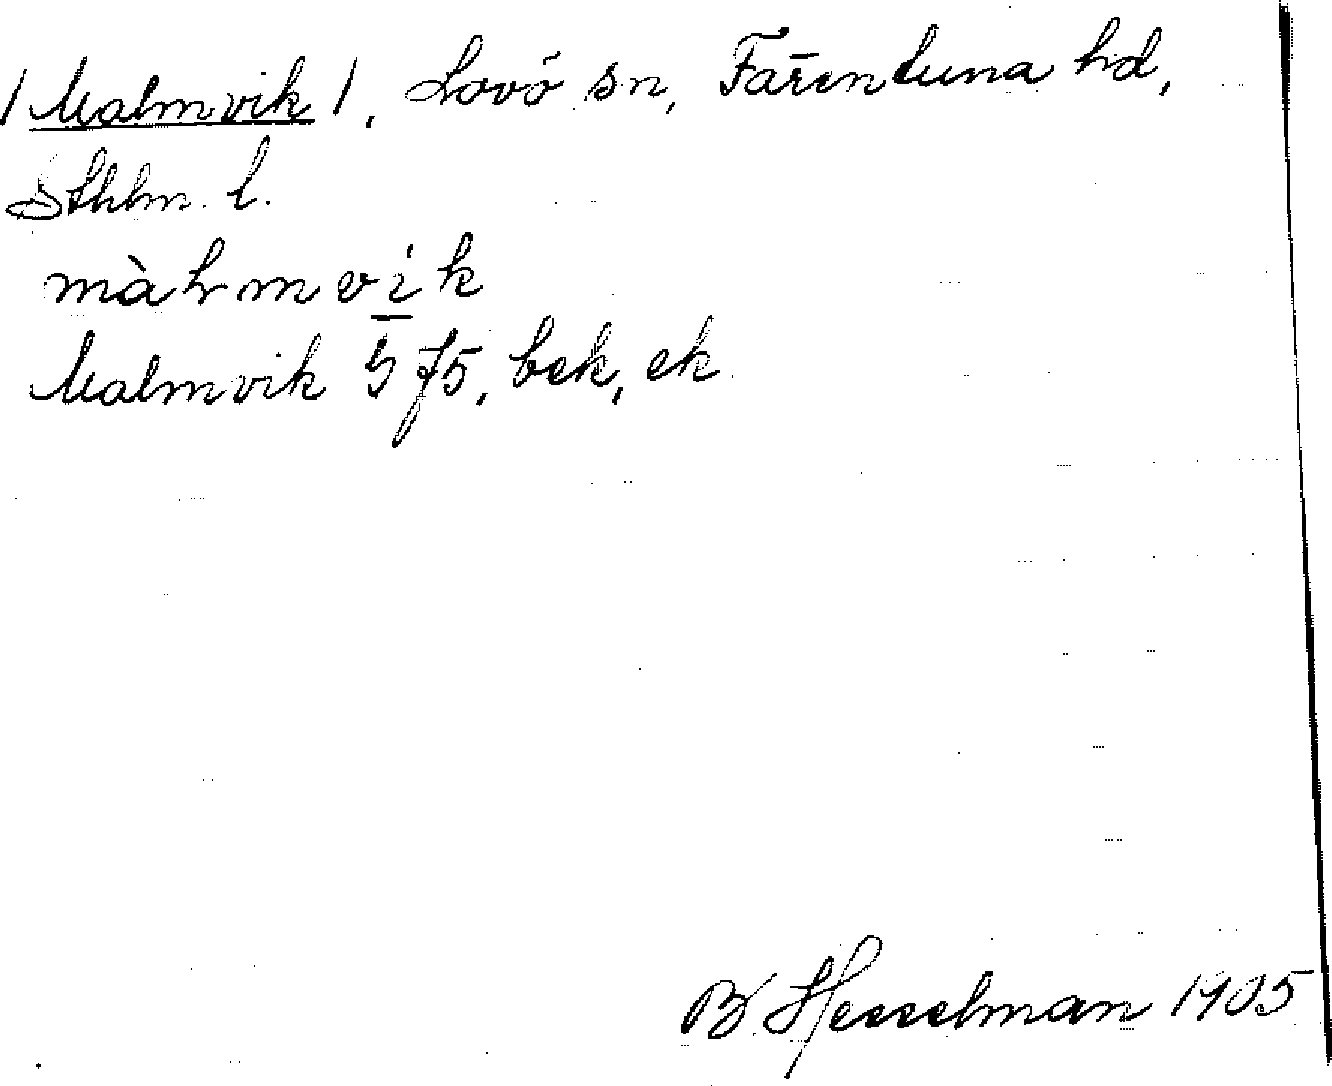 /Malmvik/, Lovö sn, Färentuna hd,
Sthlm. l.
màlmvik
Malmvik § 75, bek, ek
B. Hesselman 1905